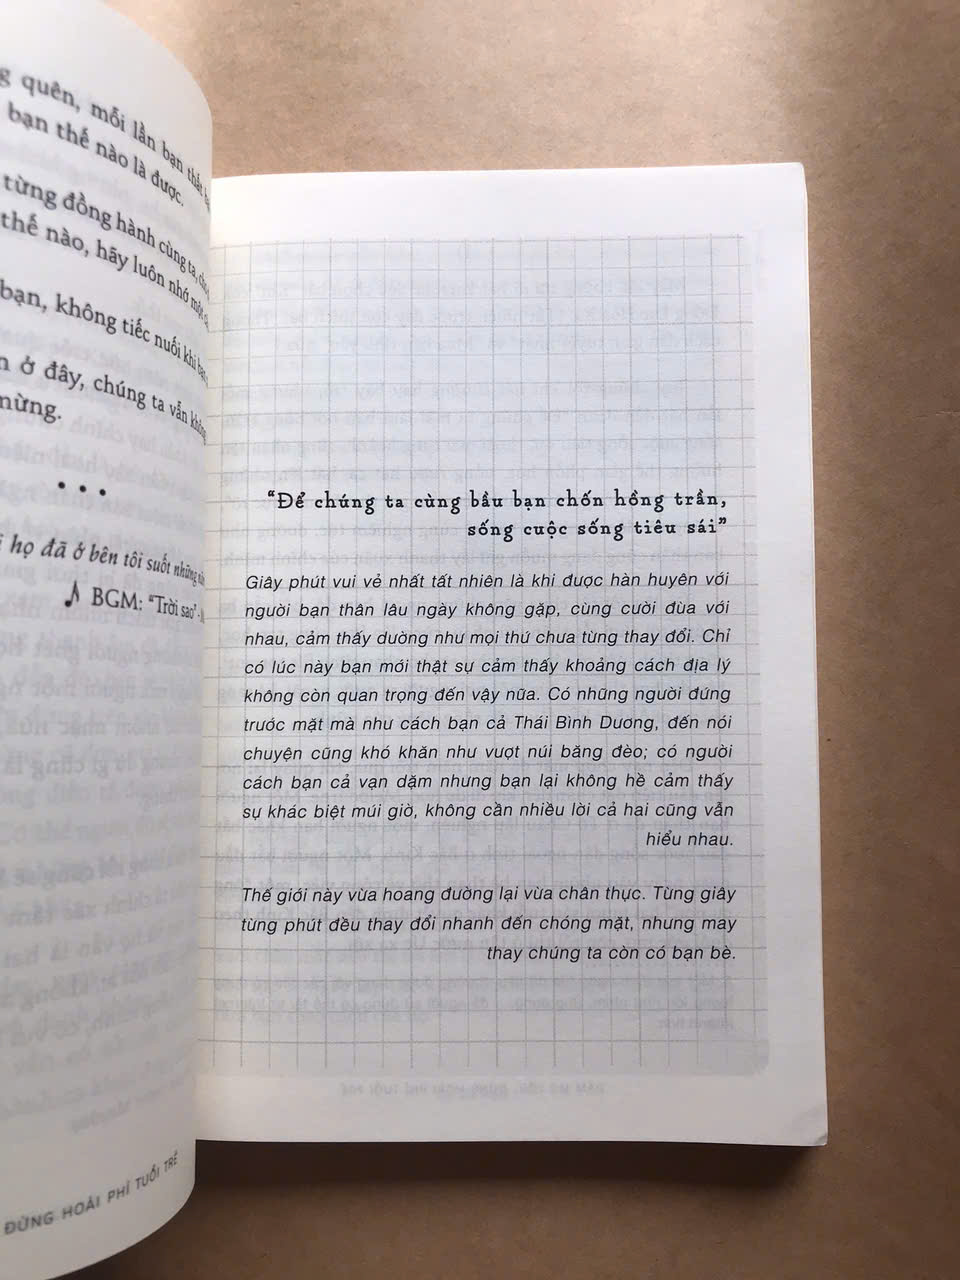 quên, mỗi lần bạn thất
bạn thế nào là được.
từng đồng hành cùng ta,
thế nào, hãy luôn nhớ
bạn, không tiếc nuối khi bạn
ở đây, chúng ta vẫn không
mừng.
• • •
họ đã ở bên tôi suốt những
♪ BGM: "Trời sao" -
ĐỪNG HOÀI PHÍ TUỔI TRẺ
“Để chúng ta cùng bầu bạn chốn hồng trần,
sống cuộc sống tiêu sái”
Giây phút vui vẻ nhất tất nhiên là khi được hàn huyên với
người bạn thân lâu ngày không gặp, cùng cười đùa với
nhau, cảm thấy dường như mọi thứ chưa từng thay đổi. Chỉ
có lúc này bạn mới thật sự cảm thấy khoảng cách địa lý
không còn quan trọng đến vậy nữa. Có những người đứng
trước mặt mà như cách bạn cả Thái Bình Dương, đến nói
chuyện cũng khó khăn như vượt núi băng đèo; có người
cách bạn cả vạn dặm nhưng bạn lại không hề cảm thấy
sự khác biệt múi giờ, không cần nhiều lời cả hai cũng vẫn
hiểu nhau.
Thế giới này vừa hoang đường lại vừa chân thực. Từng giây
từng phút đều thay đổi nhanh đến chóng mặt, nhưng may
thay chúng ta còn có bạn bè.